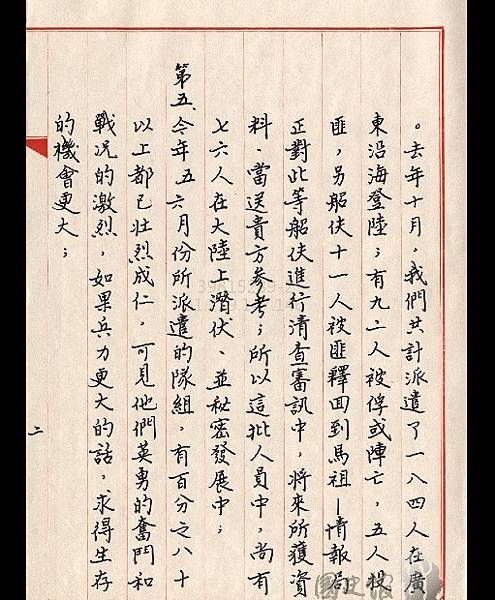 。去年十月，我們共計派遣了一八四人在廣
東沿海登陸；有九二人被俘或陣亡，五人投
匪，另船伕十一人被匪釋回到馬祖—情報局
正對此等船伕進行清查審訊中，將來所獲資
料、當送貴方參考；所以這批人員中，尚有
七六人在大陸上潛伏、並秘密發展中；
第五、今年五六月份所派遣的隊組，有百分之八十
以上都已壯烈成仁，可見他們英勇的奮鬥和
戰況的激烈，如果兵力更大的話，求得生存
的機會更大；
二
國史館